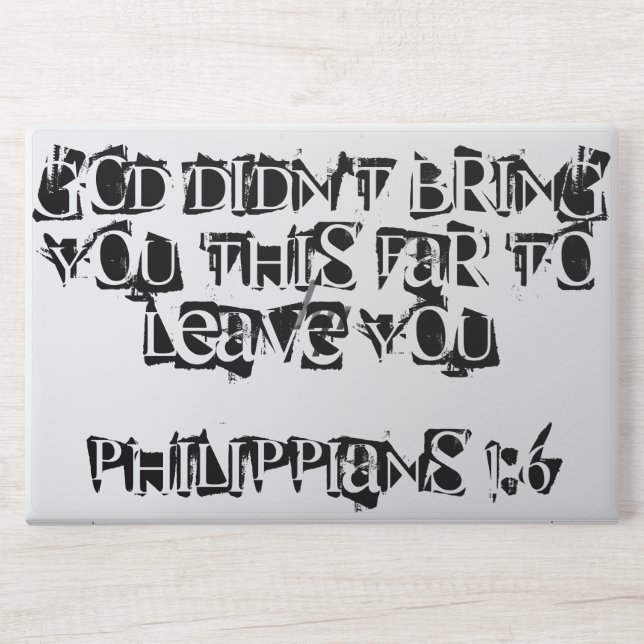 GOD DIDN'T BRING
YOU THIS FAR TO
LEAVE YOU
PHILIPPIANS 1:6